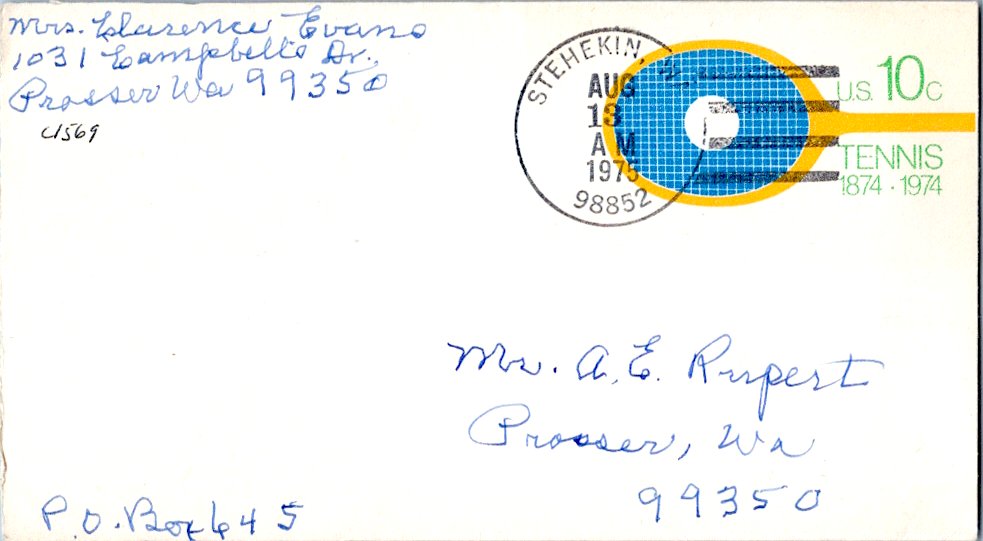 Mrs. Clarence Evans
1031 Campbells Dr.
Prosser Wa 99350
C1569
STEHEKIN, W
AUG
13
A M
1975
98852
U.S. 10c
TENNIS
1874 · 1974
Mr. A. E. Rupert
Prosser, Wa
99350
P.O. Box 645